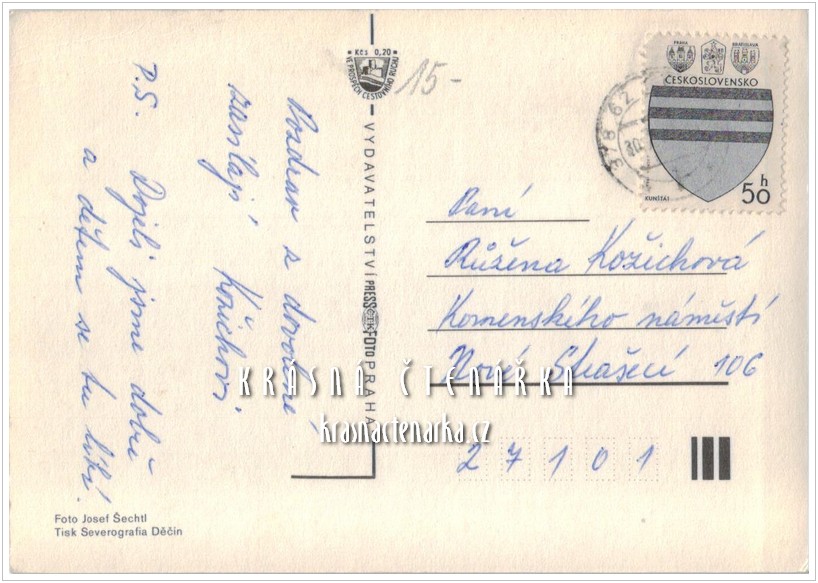 Pozdrav z dovolené
zasílají Kožichovi.
P.S. Dojeli jsme dobře
a dětem se tu líbí.
Foto Josef Šechtl
Tisk Severografia Děčín
Kčs 0,20
VE PROSPĚCH CESTOVNÍHO RUCHU
VYDAVATELSTVÍ PRESSFOTO PRAHA
15-
378 62
PRAHA
BRATISLAVA
ČESKOSLOVENSKO
KUNŠTÁT
50 h
Paní
Růžena Kožichová
Komenského náměstí
Nové Strašecí 106
27101
KRÁSNÁ ČTENÁŘKA
krasnactenarka.cz